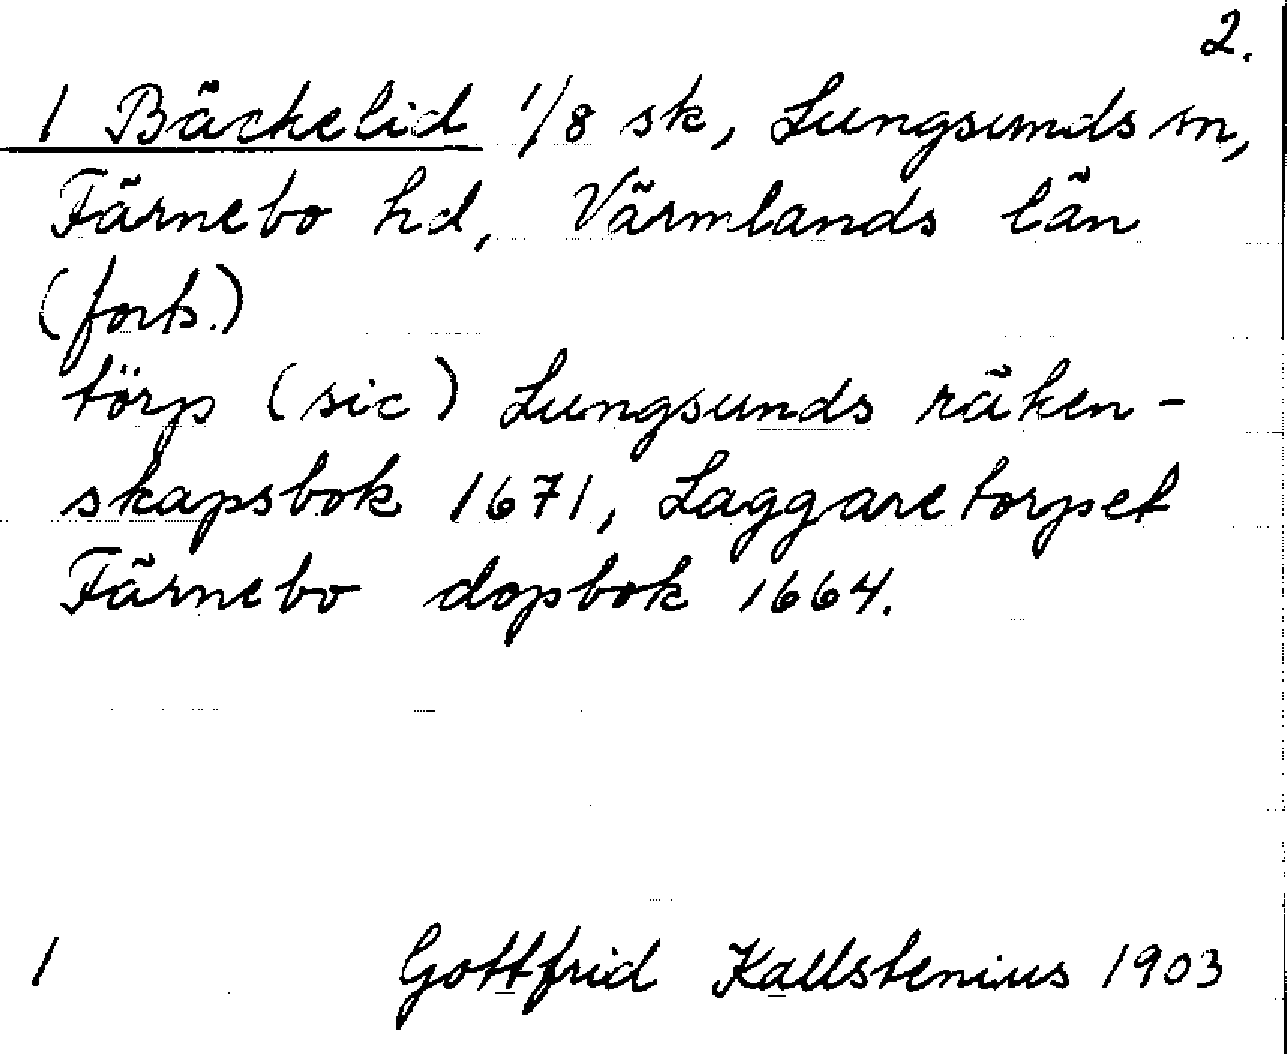 2.
1 Bäckelid 1/8 sk, Lungsunds sn,
Färnebo hd, Värmlands län
(forts.)
törp (sic) Lungsunds räken-
skapsbok 1671, Laggaretorpet
Färnebo dopbok 1664.
1 Gottfrid Kallstenius 1903